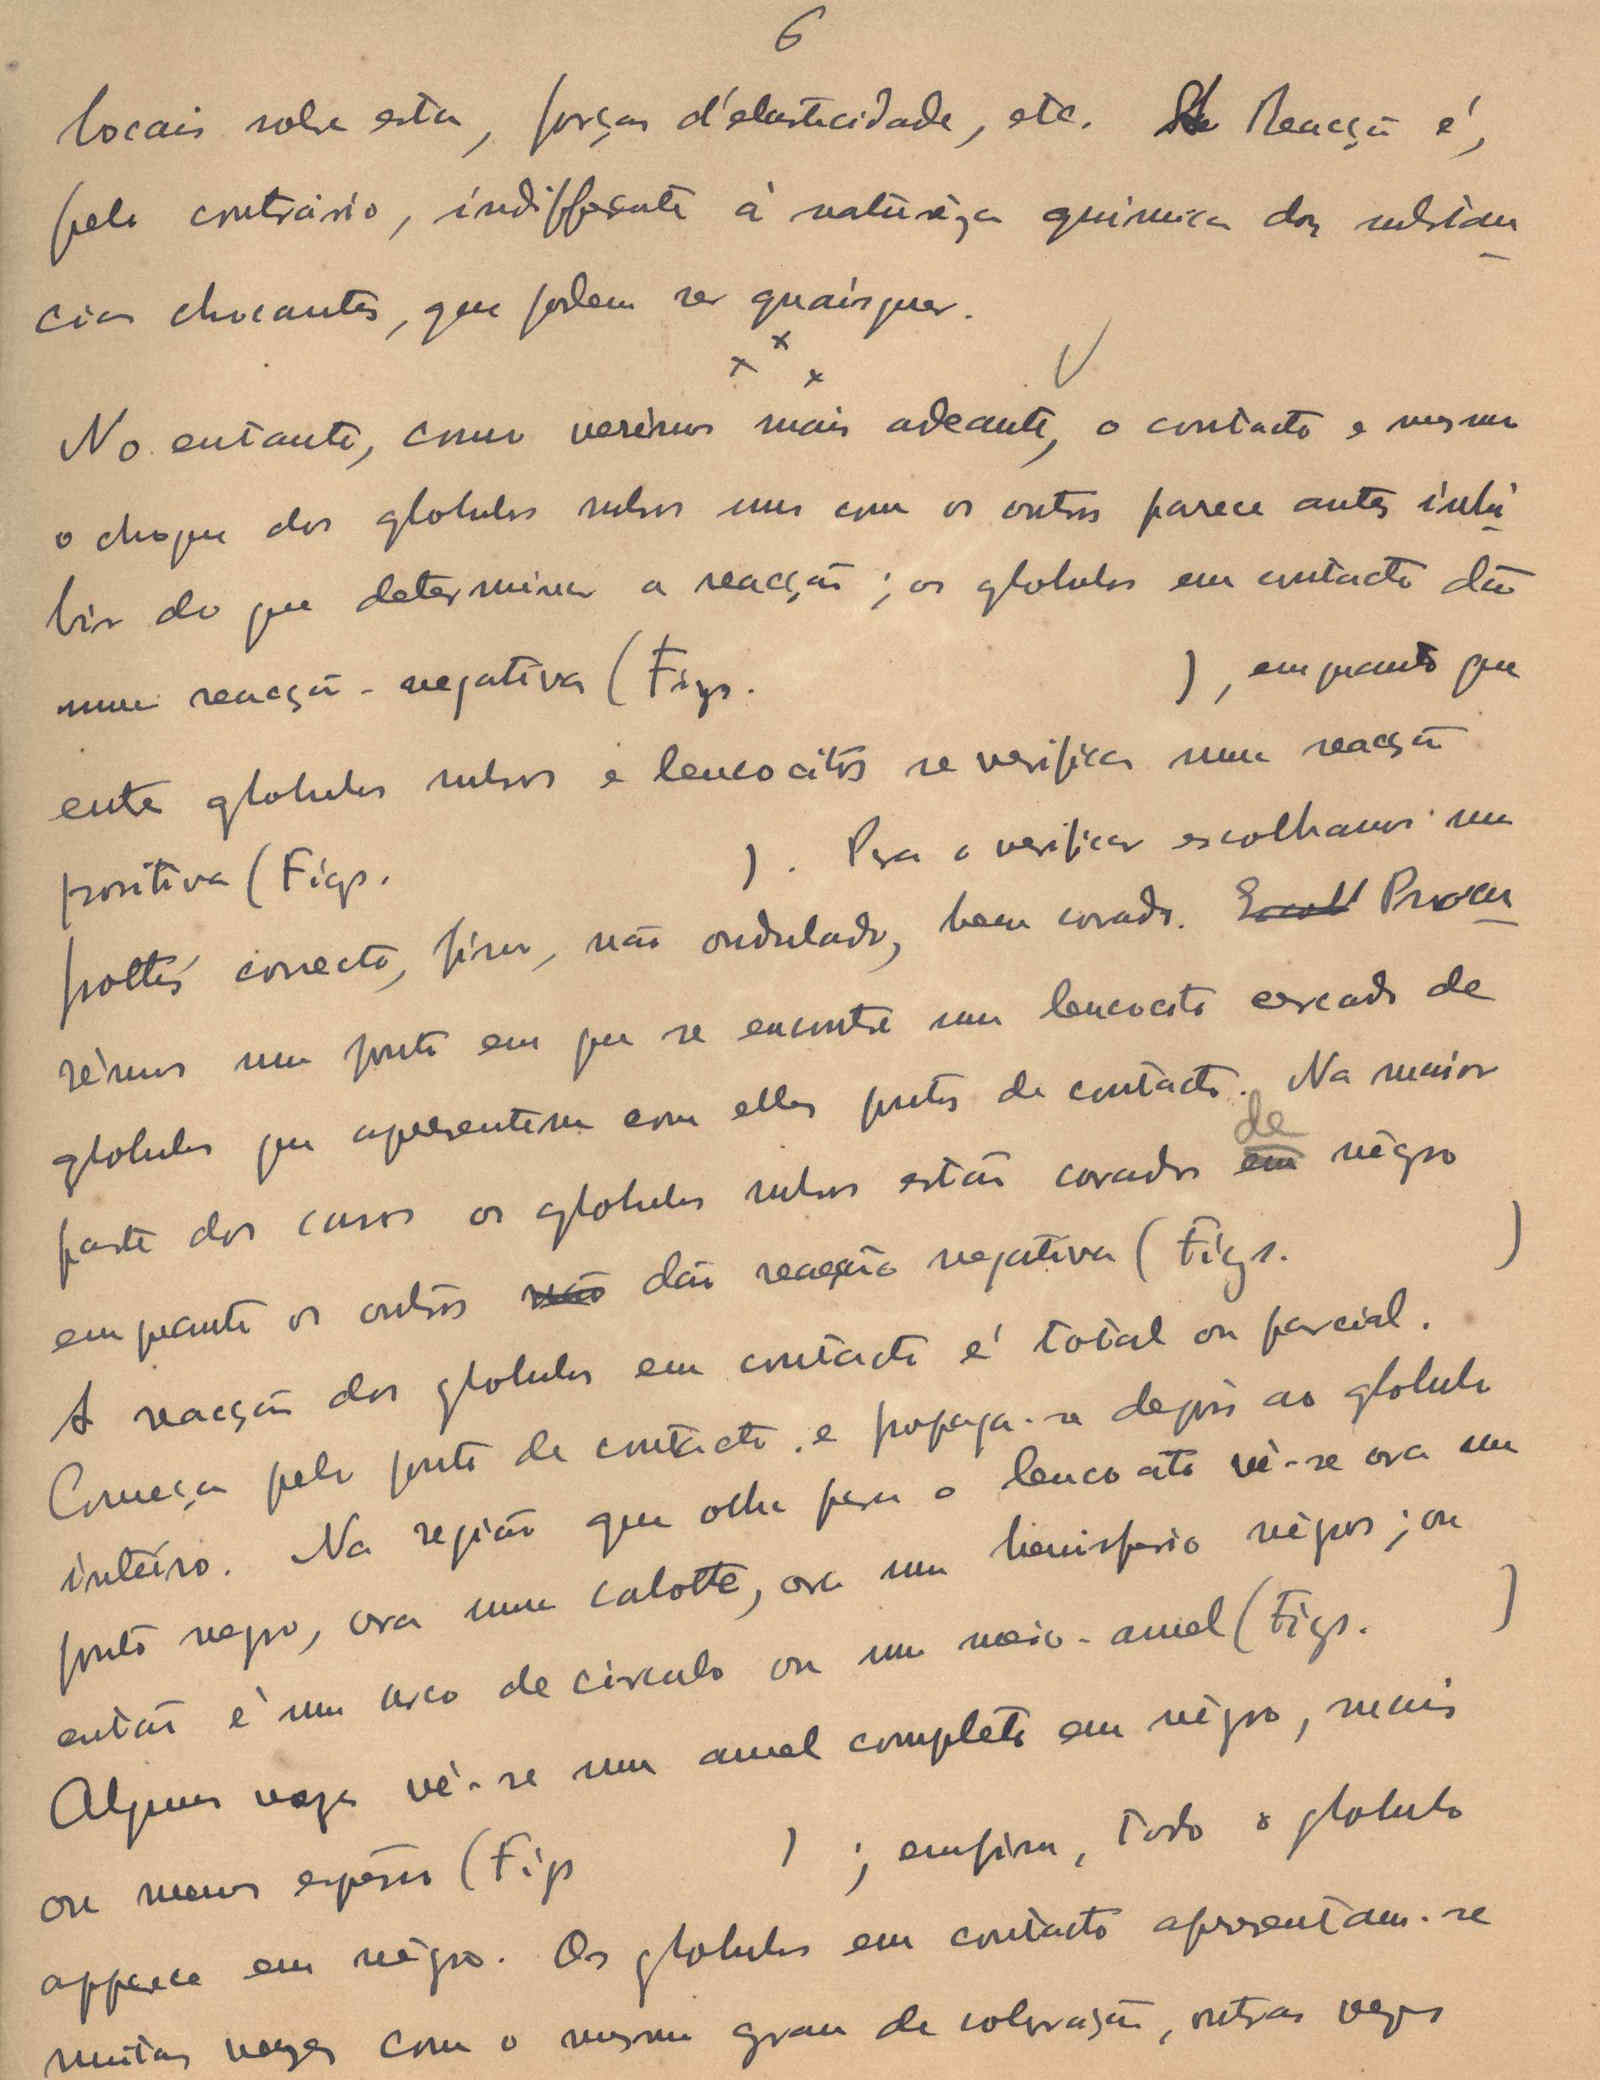 6
locais sobre esta, forças d'elasticidade, etc. A Reacção é,
pelo contrário, indifferente à naturêza quimica das substan
cias chocantes, que podem ser quaisquer.
x x x
No entanto, como verêmos mais adeante, o contacto e mesmo
o choque dos globulos rubros uns com os outros parece antes inhi
bir do que determinar a reacção; os globulos em contacto dão
uma reacção negativa (Figs. ), emquanto que
entre globulos rubros e leucocitos se verifica uma reacção
positiva (Figs. ). Para o verificar escolhamos um
frottis correcto, fino, não ondulado, bem corado. Escolh Procu
rêmos um ponto em que se encontre um leucocito cercado de
globulos que apresentem com elles pontos de contacto. Na maior
parte dos casos os globulos rubros estão corados em de nêgro
emquanto os outros não dão reacção negativa (Figs. )
A reacção dos globulos em contacto é total ou parcial.
Começa pelo ponto de contacto e propaga-se depois ao globulo
inteiro. Na região que olha para o leucocito vê-se ora um
ponto negro, ora uma calotte, ora um hemisferio nêgros; ou
então é um arco de circulo ou um meio-anel (Figs. )
Algumas vezes vê-se um anel completo em nêgro, mais
ou menos espêsso (Figs ); emfim, todo o globulo
apparece em nêgro. Os globulos em contacto apresentam-se
muitas vezes com o mesmo grau de coloração, outras vezes